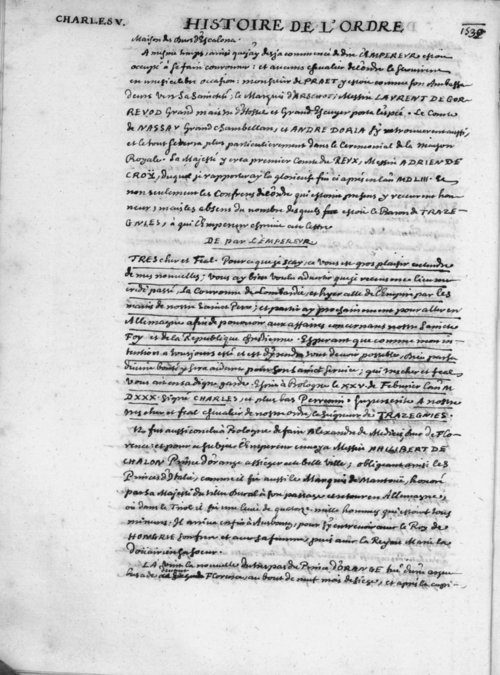 CHARLES V. HISTOIRE DE L'ORDRE 1530
Maison des ducs d'Escalona.
A mesme temps, ainsi que j'ay desja commencé de dire L'AMPEREUR estoit
occupé à se faire couronner; et aucuns chevalier de l'ordre le servirent
en une si celebre occasion; monsieur de PRAET y estoit comme son Ambassa
deur vers sa Sainteté, le Marquis d'ARSCHOT, Messire LAVRENT DE GOR
REVOD Grand maistre d'Hostel et Grand Escuyer porta l'espée. Le Comte
de NASSAV Grand chambellan, et ANDRE DORIA s'y retrouverent aussi,
et le tout se verra plus particulierement dans le Ceremonial de la maison
Royale. Sa Majesté y crea premier Comte du REUX, Messire ADRIEN DE
CROŸ, duquel je rapporteray la glorieuse fin cy apres en l'an MDLIII. Et
non seulement les Confreres de l'ordre qui estoient presens y receurent hon
neur; mais les absens du nombre desquels fut estoit le Baron de TRAZE-
GNIES, à qui l'Empereur escrivit cette lettre
DE par L'EMPEREUR
TRES cher et Feal. Pource que je sçay, ce vous est gros plaisir entendre
de mes nouvelles; vous ay bien voulu advertir que je receus mercre
credi passé, la Couronne de Lombardie, et hyer celle de l'Empire par les
mains de nostre Sainct Pere; et partiray prochainement pour aller en
Allemaigne afin de pourveoir aux affaires concernans nostre Saincte
Foy et de la Republique chrestienne. Esperant que comme mon in-
tention a tousjours esté et est d'y rendre tout devoir possible, Dieu par sa
divine bonté y sera aidant pour son sainct service; qui mescher et feal
vous ait en sa digne garde. Escrit à Bologne le XXV de Febvrier l'an M
DXXX. Signé CHARLES, et plus bas Perrenin. Superscrite A nostre
mescher et feal chevalier de nostre ordre, le Seigneur de TRAZEGNIES.
Il fut aussi conclu à Bologne de faire Alexandre de Medicis, Duc de Flo-
rence; et pour ce sujet l'Empereur envoya Messire PHILIBERT DE
CHALON Prince d'orange assieger cette belle ville; obligeant ainsi les
Princes d'Italie, comme il fit aussi le Marquis de Mantouë, honoré
par sa Majesté du tiltre Ducal à son passage et retour en Allemaigne,
où dans le Tirol il fit une levée de quatorze mille hommes qui estoient tous
mineurs. Il arriva enfin à Ausbourg, pour s'y entrevoir avec le Roy de
HONGRIE son frere et avec sa femme, puis avec la Reyne Marie la
doüairiere sa sœur.
LA vint la nouvelle du trespas du Prince d'ORANGE tué d'une arque
busade devant Florence, au bout de neuf mois de siege, et apres la capi-